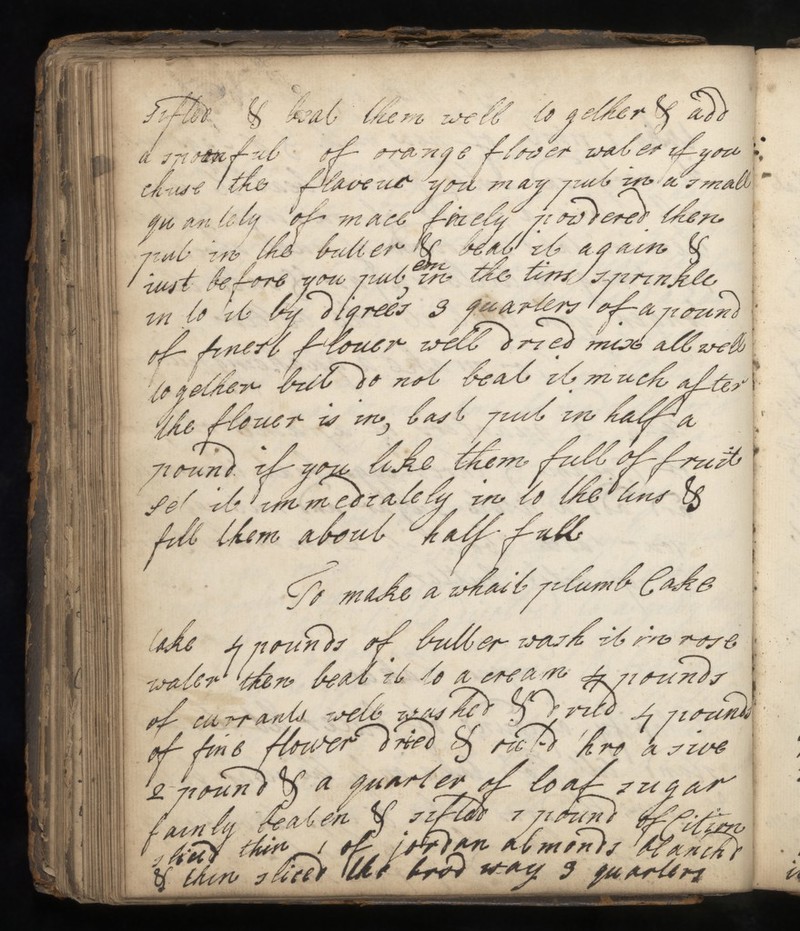 sifted & beat them well to gether & add
a spoonful of orange flower water if you
chuse the flaveur you may put in a small
quantely of mace finely powdered then
put in the butter & beat it again &
iust before you put em in the tins sprinkle
in to it by digrees 3 quarters of a pound
of finest flouer well dried mix all well
to gether but do not beat it much after
the flouer is in, last put in half a
pound if you like them full of fruit
set it immediately in to the tins &
fill them about half full
To make a whait plumb Cake
take 4 pounds of butter wash it in rose
water then beat it to a cream 4 pounds
of currants well washed & dried 4 pounds
of fine flower dried & thro a sive
2 pound & a quarter of loaf sugar
beaten & sifted 1 pound of Citron
sliced thin 1 of jordan almonds blanchd
& thin sliced the brod way 3 quarters